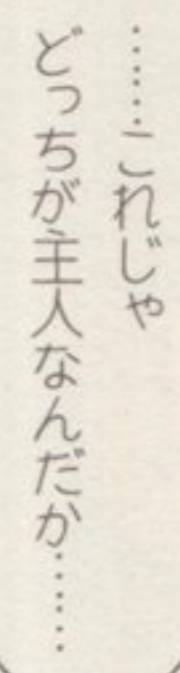 ……これじゃ
どっちが主人なんだか……